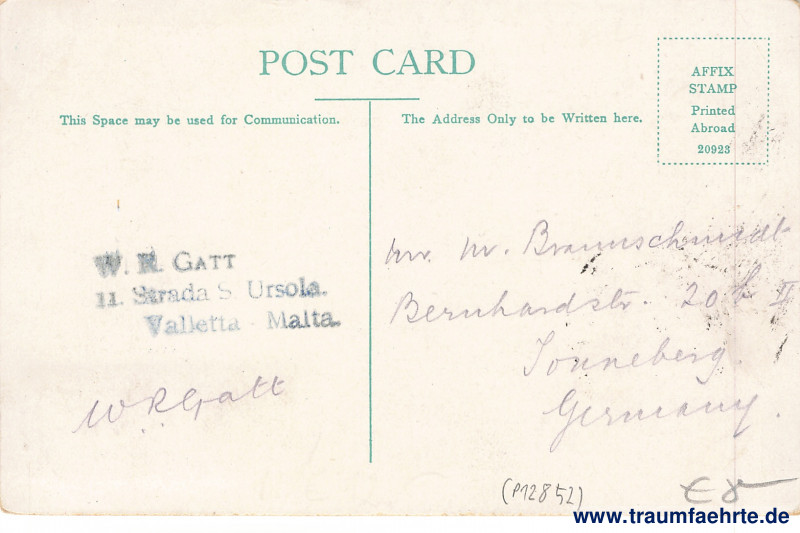 POST CARD
This Space may be used for Communication.
The Address Only to be Written here.
AFFIX
STAMP
Printed
Abroad
20923
W. R. GATT
11. Strada S. Ursola.
Valletta - Malta.
W R Gatt
Mr. M. Braunschmidt
Bernhardstr. 20 II
Sonneberg.
Germany.
(P12852)
€ 8
www.traumfaehrte.de